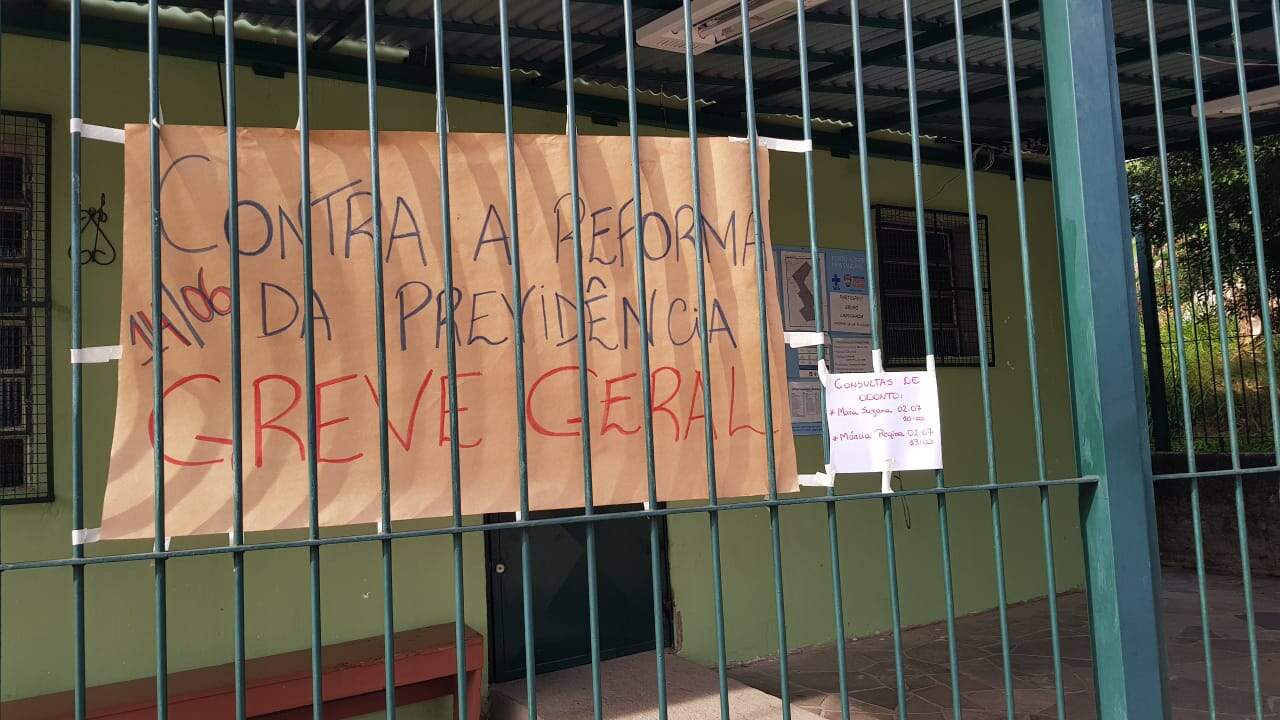 CONTRA A REFORMA
14/06 DA PREVIDÊNCIA
GREVE GERAL
CONSULTAS DE
ODONTO:
* Mara Suzana 02.07
10:00
* Márcia Regina 02.07
13:00